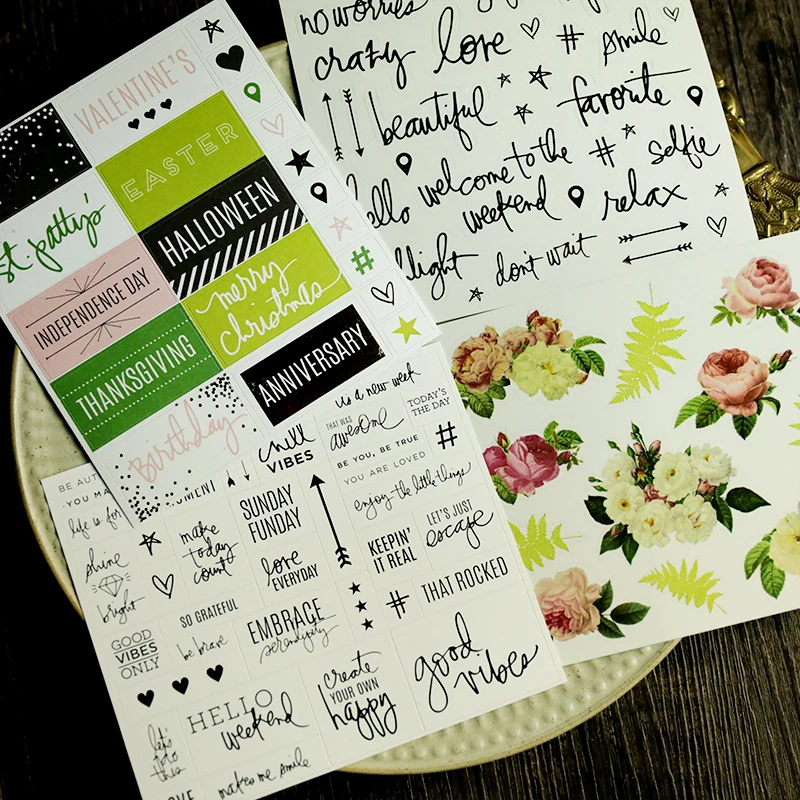 VALENTINE'S
EASTER
st. patty's
HALLOWEEN
INDEPENDENCE DAY
merry
christmas
THANKSGIVING
ANNIVERSARY
Birthday
no worries
crazy love # smile
beautiful favorite
hello welcome to the # selfie
weekend relax
don't wait
#
chill
VIBES
THAT WAS
awesome
TODAY'S
THE DAY
BE YOU, BE TRUE
YOU ARE LOVED
#
enjoy the little things
life is
SUNDAY
FUNDAY
make
today
count
KEEPIN'
IT REAL
LET'S JUST
escape
shine
bright
love
EVERYDAY
SO GRATEFUL
be brave
EMBRACE
serendipity
# THAT ROCKED
GOOD
VIBES
ONLY
HELLO
weekend
create
YOUR OWN
happy
good
vibes
let's
do
this
makes me smile